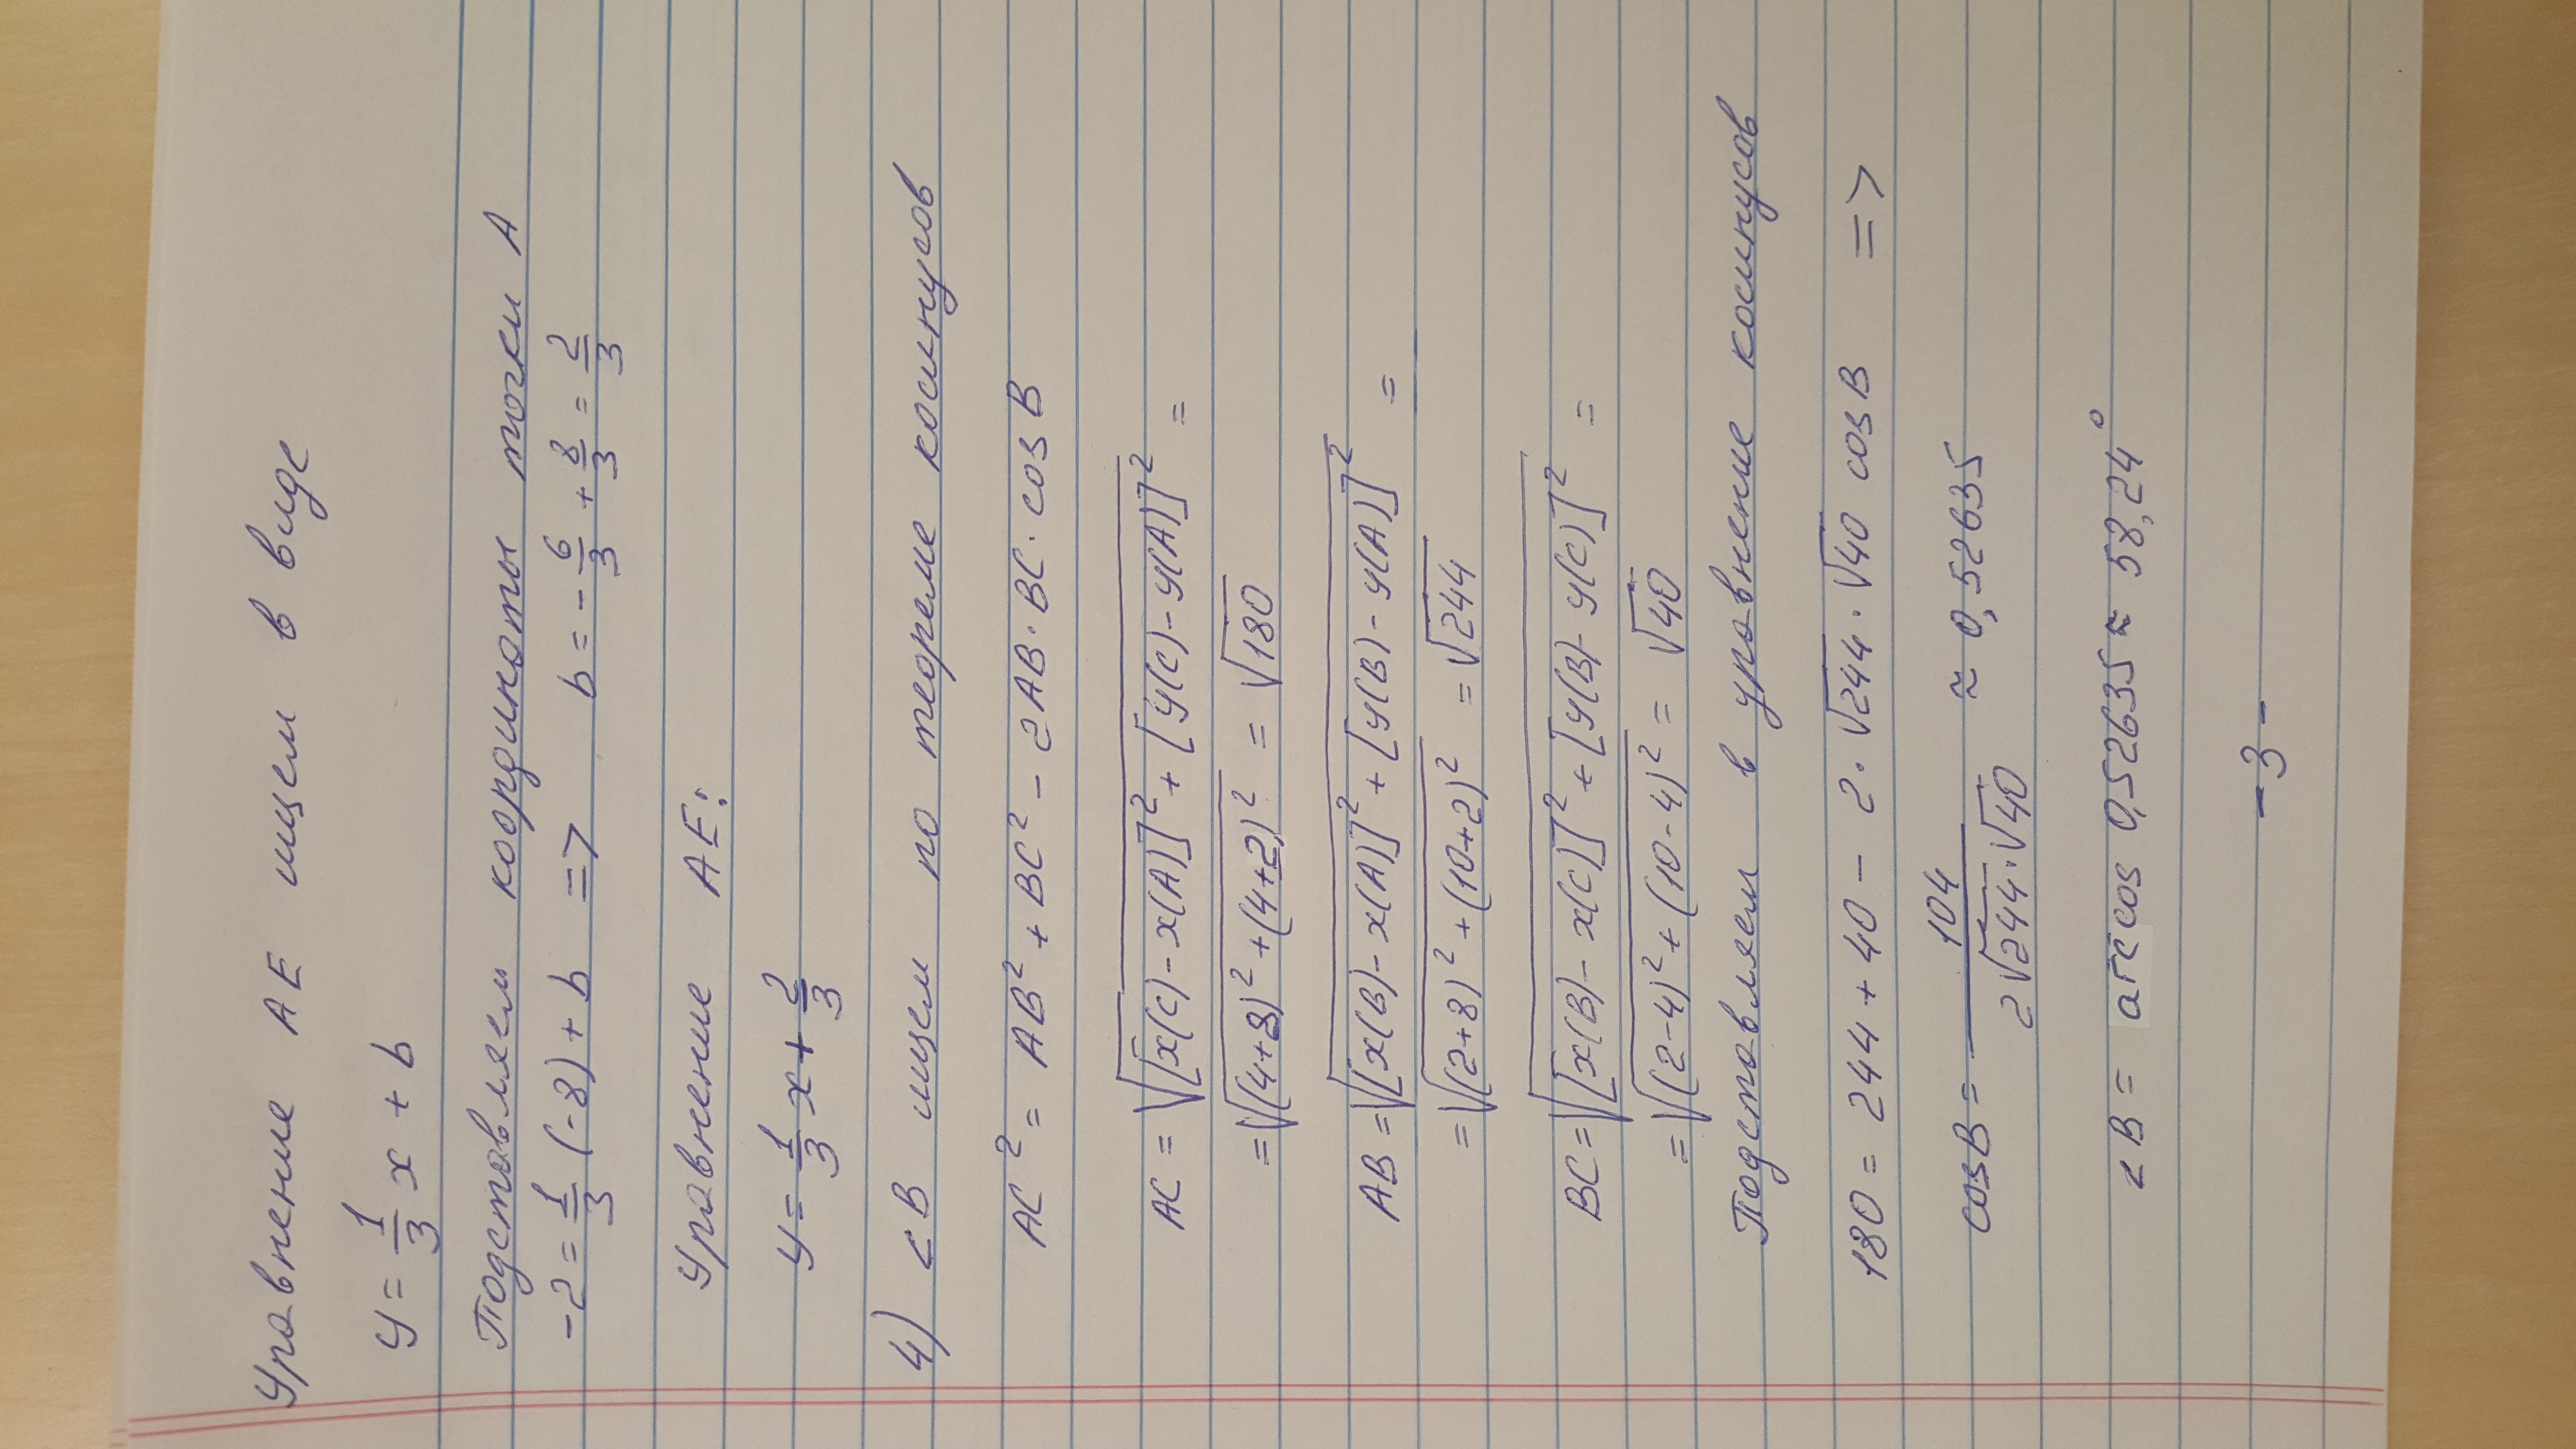 Уравнение AE ищем в виде
y = 1/3 x + b
Подставляем координаты точки A
-2 = 1/3 (-8) + b => b = - 6/3 + 8/3 = 2/3
Уравнение AE:
y = 1/3 x + 2/3
4) <B ищем по теореме косинусов
AC² = AB² + BC² - 2AB · BC · cos B
AC = √[x(C) - x(A)]² + [y(C) - y(A)]² =
= √(4+8)² + (4+2)² = √180
AB = √[x(B) - x(A)]² + [y(B) - y(A)]² =
= √(2+8)² + (10+2)² = √244
BC = √[x(B) - x(C)]² + [y(B) - y(C)]² =
= √(2-4)² + (10-4)² = √40
Подставляем в уравнение косинусов
180 = 244 + 40 - 2 · √244 · √40 cos B =>
cosB = 104/(2√244 · √40) ≈ 0,52635
<B = arccos 0,52635 ≈ 58,24°
- 3 -